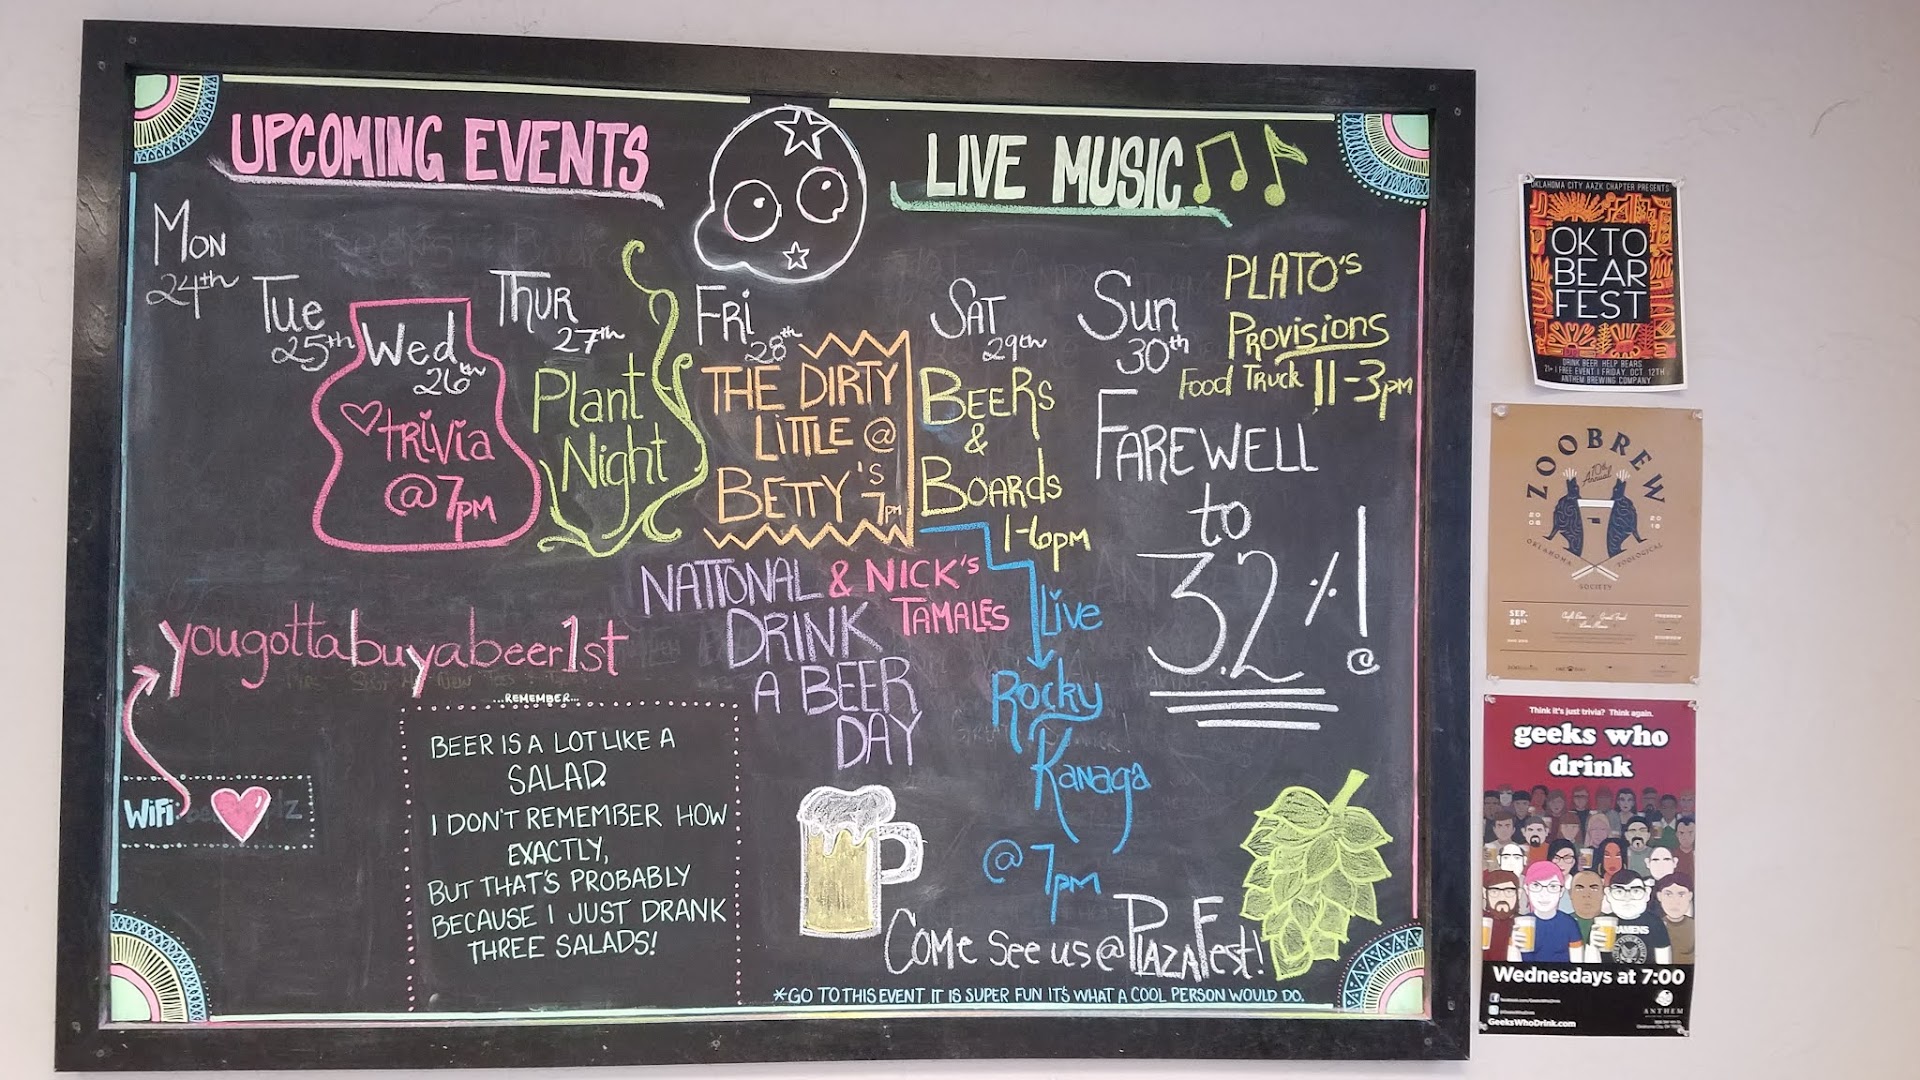 UPCOMING EVENTS
LIVE MUSIC
MON
24th
Tue
25th
Wed.
26th
triVia
@7pm
THUR
27th
Plant
Night
FRi
28th
THE DIRTY
LITTLE @
BETTY'S
7pm
NATIONAL
DRINK
A BEER
DAY
& NICK'S
TAMALES
SAT
29th
BEERS
&
BOARDS
1-6pm
Live
Rocky
Kanaga
@ 7pm
Sun
30th
PLATO'S
PROVISIONS
Food Truck 11-3pm
FAREWELL
to
3.2%!
yougottabuyabeer1st
WiFi:
...REMEMBER...
BEER IS A LOT LIKE A
SALAD.
I DON'T REMEMBER HOW
EXACTLY,
BUT THAT'S PROBABLY
BECAUSE I JUST DRANK
THREE SALADS!
COME SEE US @ PLAZAFEST!
*GO TO THIS EVENT IT IS SUPER FUN IT'S WHAT A COOL PERSON WOULD DO.
OKLAHOMA CITY AAZK CHAPTER PRESENTS
OKTO
BEAR
FEST
DRINK BEER. HELP BEARS
21+ | FREE EVENT | FRIDAY, OCT 12TH
ANTHEM BREWING COMPANY
ZOOBREW
10th
Annual
2008
2018
OKLAHOMA ZOOLOGICAL
SOCIETY
SEP.
28th
Think it's just trivia? Think again.
geeks who
drink
Wednesdays at 7:00
GeeksWhoDrink.com
ANTHEM